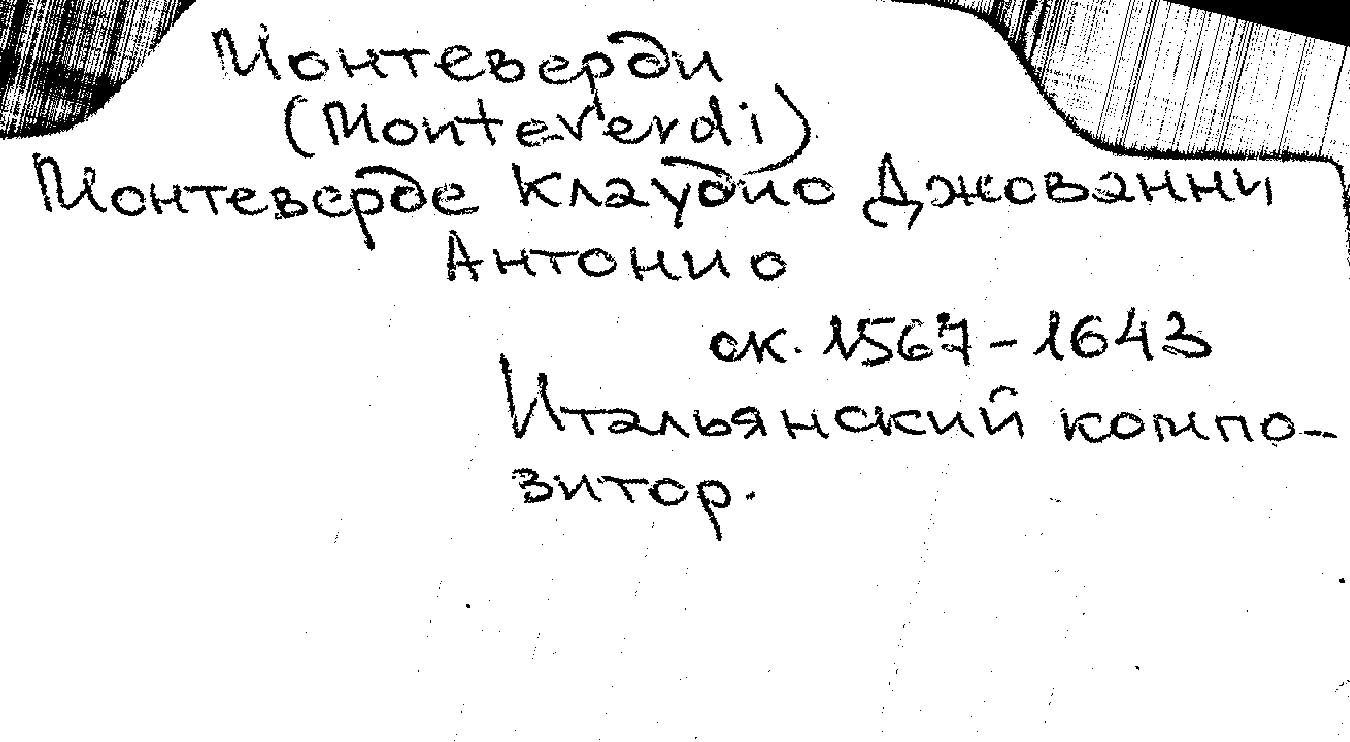 Монтеверди
(Monteverdi)
Монтеверде Клаудио Джованни
Антонио
ок. 1567-1643
Итальянский компо-
зитор.